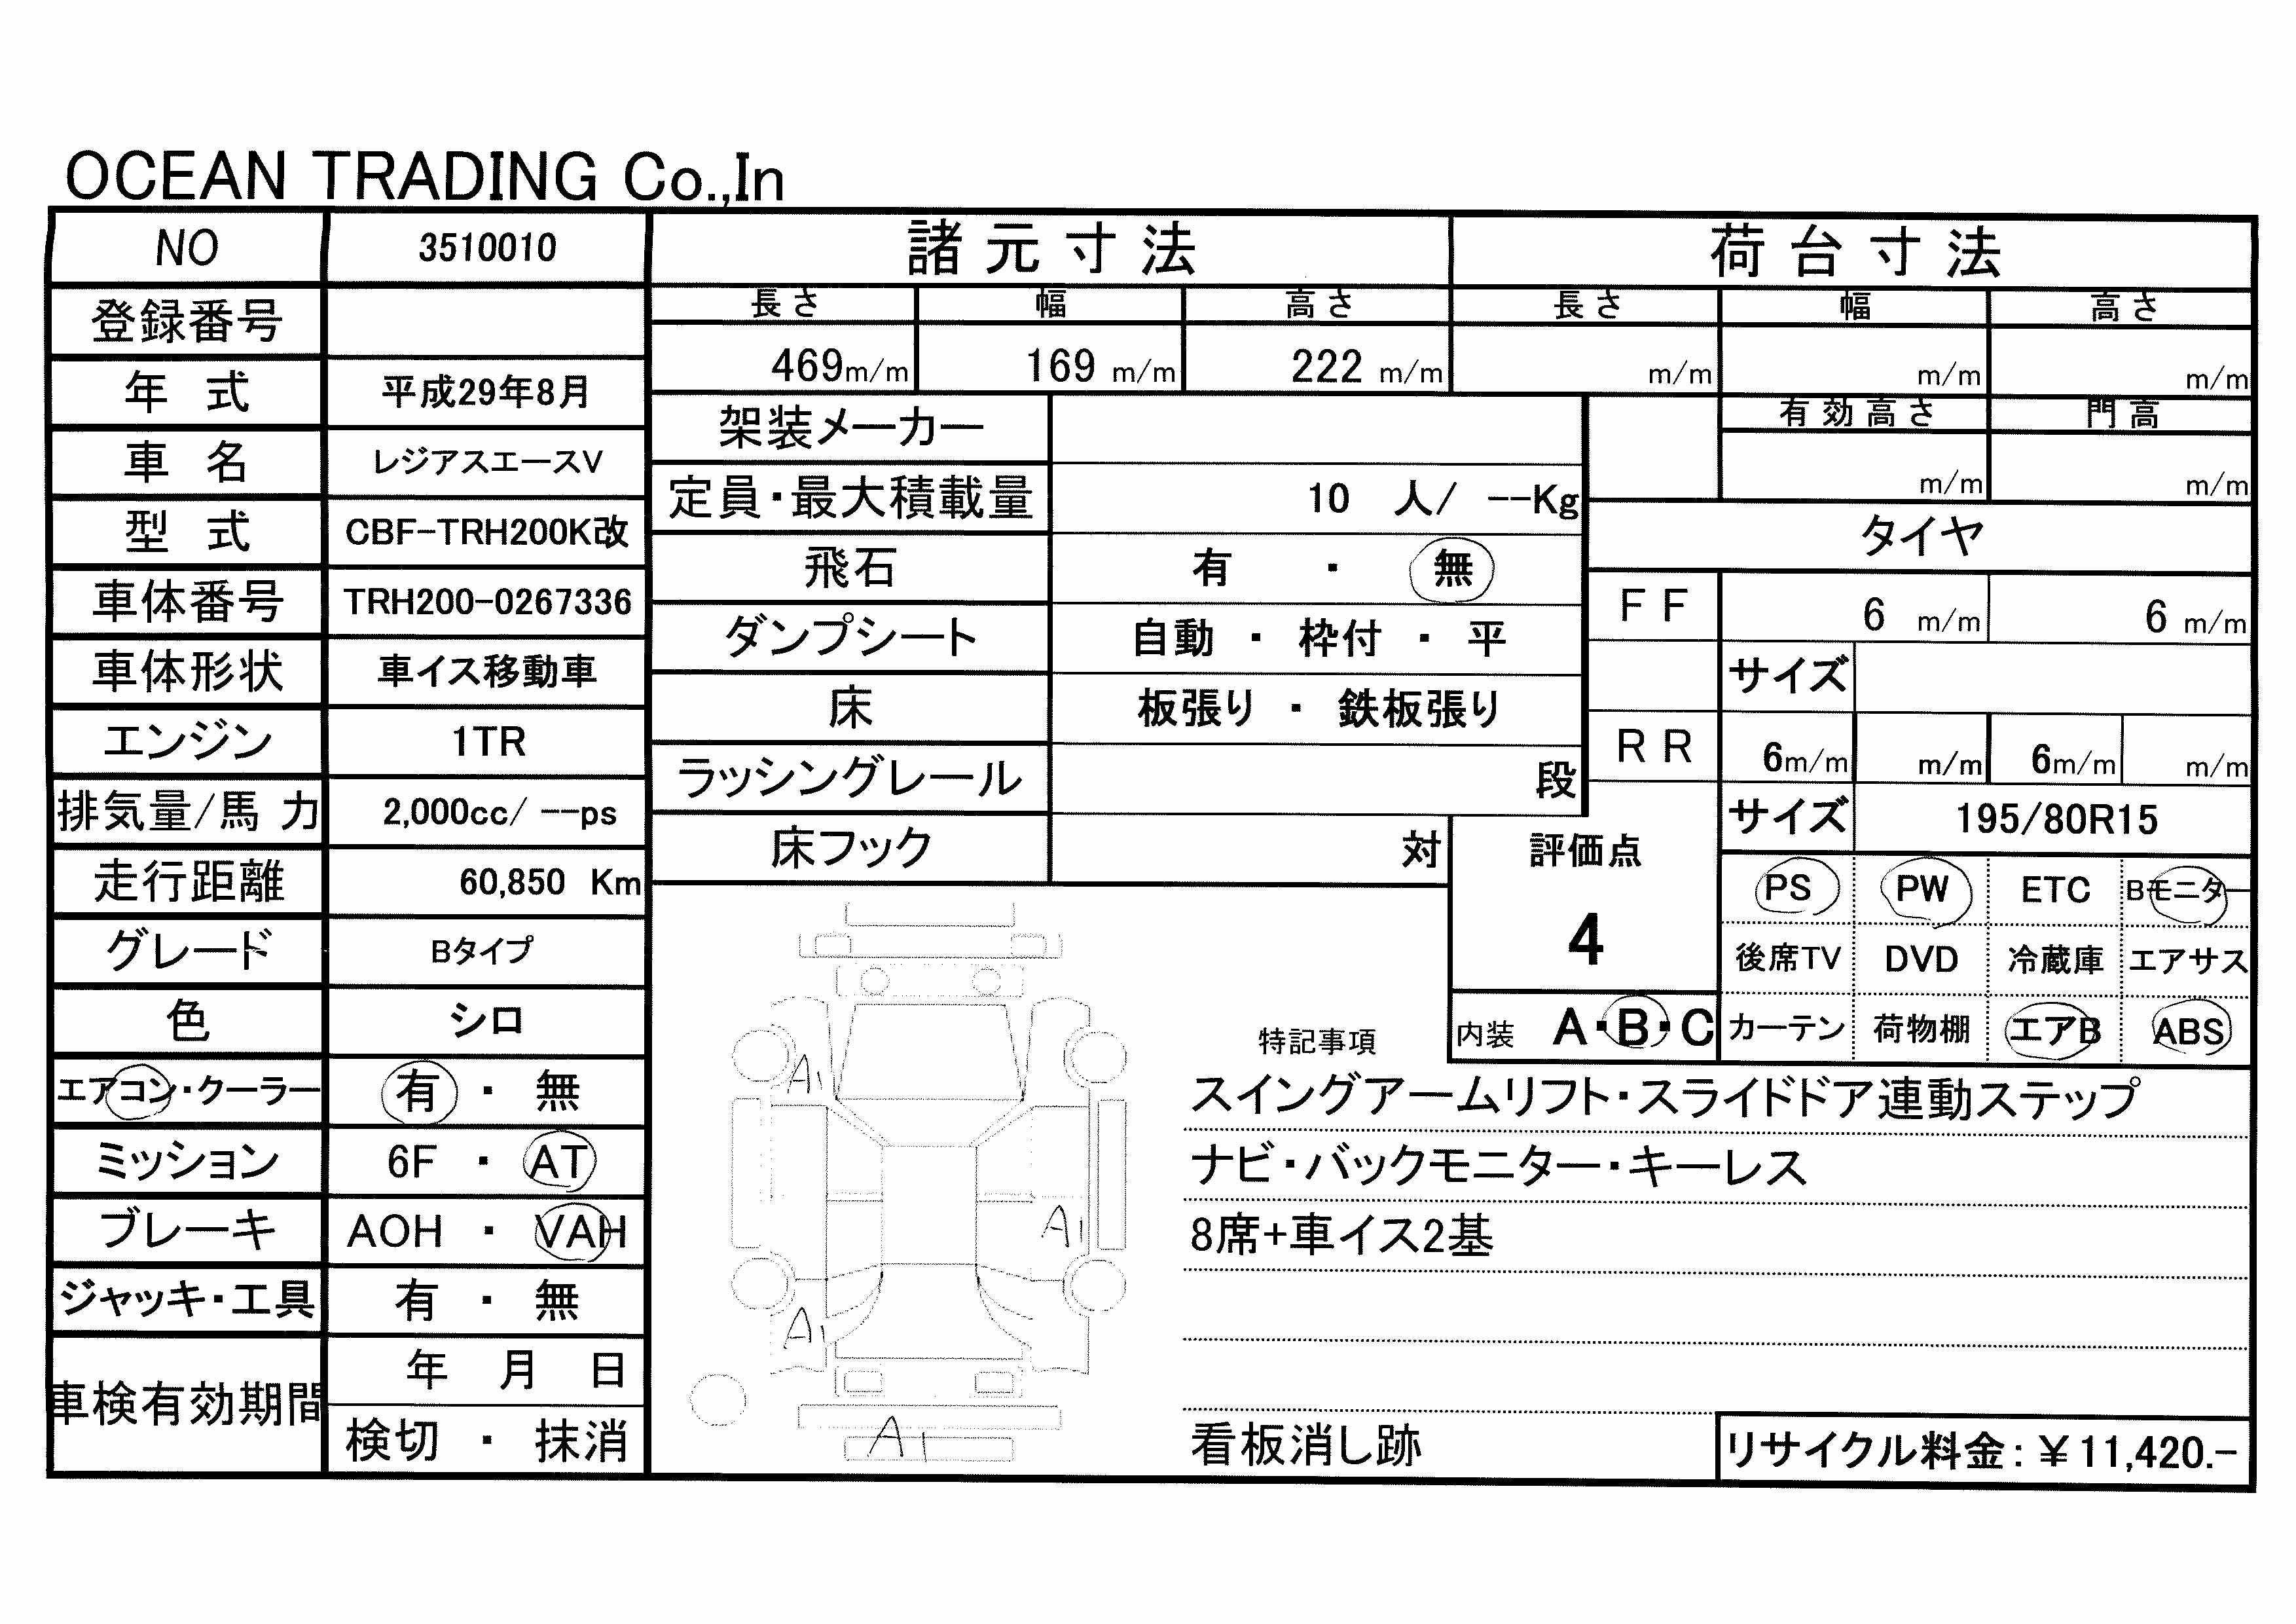 OCEAN TRADING Co.,In
NO 3510010 諸元寸法 荷台寸法
登録番号 長さ 幅 高さ 長さ 幅 高さ
469m/m 169 m/m 222 m/m m/m m/m m/m
年 式 平成29年8月
架装メーカー 有効高さ 門高
車 名 レジアスエースV
定員・最大積載量 10 人/ --Kg m/m m/m
型 式 CBF-TRH200K改
飛石 有 ・ 無 タイヤ
車体番号 TRH200-0267336
ダンプシート 自動 ・ 枠付 ・ 平 FF 6 m/m 6 m/m
車体形状 車イス移動車
床 板張り ・ 鉄板張り サイズ
エンジン 1TR
ラッシングレール 段 RR 6m/m m/m 6m/m m/m
排気量/馬 力 2,000cc/ --ps
床フック 対 評価点 サイズ 195/80R15
走行距離 60,850 Km
PS PW ETC Bモニター
グレード Bタイプ 4
後席TV DVD 冷蔵庫 エアサス
色 シロ
特記事項 内装 A・B・C カーテン 荷物棚 エアB ABS
エアコン・クーラー 有 ・ 無
A1
スイングアームリフト・スライドドア連動ステップ
ミッション 6F ・ AT
ナビ・バックモニター・キーレス
ブレーキ AOH ・ VAH
A1
8席+車イス2基
ジャッキ・工具 有 ・ 無
A1
車検有効期間 年 月 日
検切 ・ 抹消
A1
看板消し跡 リサイクル料金:¥11,420.-